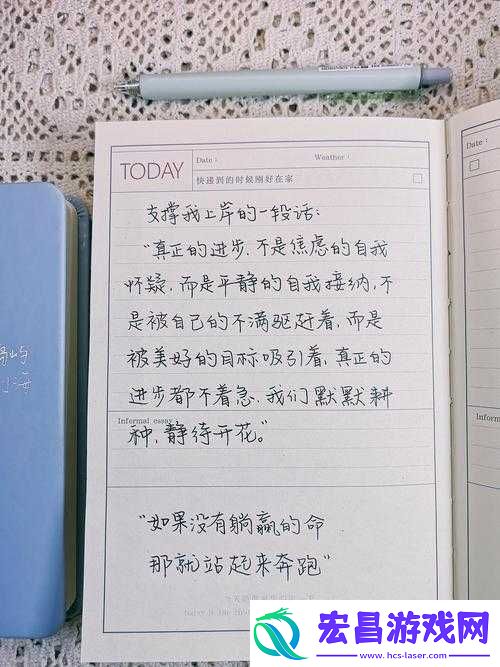 TODAY
Date：
Weather：
快递到的时候刚好在家
支撑我上岸的一段话：
“真正的进步，不是焦虑的自我
怀疑，而是平静的自我接纳，不
是被自己的不满驱赶着，而是
被美好的目标吸引着，真正的
进步都不着急，我们默默耕
Informal essay
种，静待开花。”
“如果没有躺赢的命
那就站起来奔跑”
Date：
Informal
屿
海
宏昌游戏网
www.hcs-laser.com